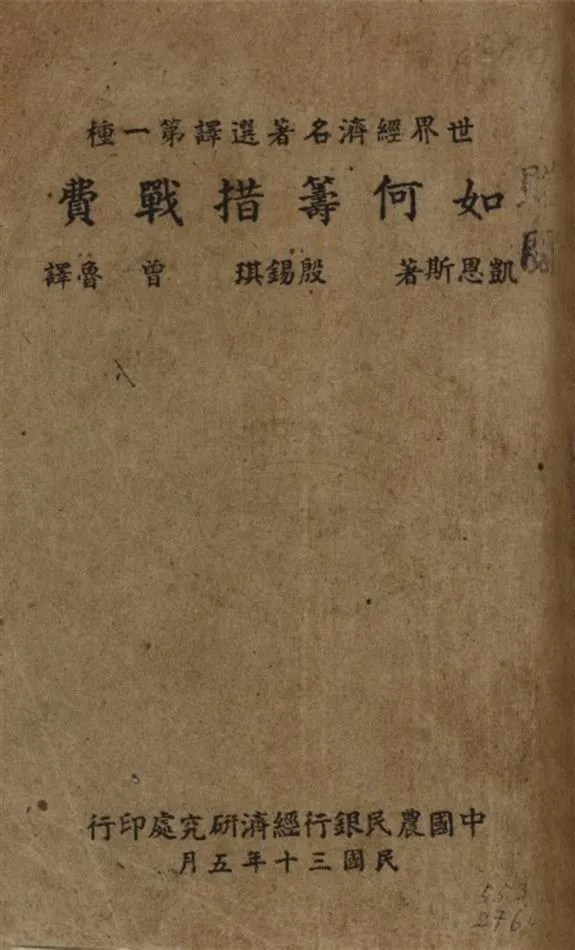 世界經濟名著選譯第一種
如何籌措戰費
凱恩斯著 殷錫琪 曾魯譯
中國農民銀行經濟研究處印行
民國三十年五月
553